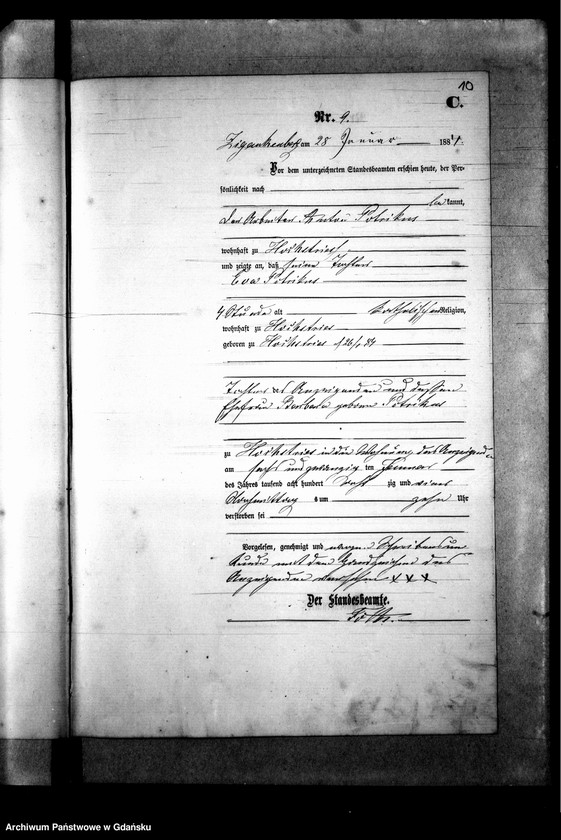 10
C.
Nr. 9.
Zigankenberg am 28 Januar 1884.
Vor dem unterzeichneten Standesbeamten erschien heute, der Per-
sönlichkeit nach
bekannt,
der Arbeiter Anton Potrikus
wohnhaft zu Hochstries
und zeigte an, daß seine Tochter
Eva Potrikus
4 Stunde alt katholischen Religion,
wohnhaft zu Hochstries
geboren zu Hochstries
Tochter des Anzeigenden und dessen
Ehefrau Barbara geborne Potrikus
zu Hochstries in der Wohnung des Anzeigenden
am sechs und zwanzig ten Januar
des Jahres tausend acht hundert acht zig und
Nachmittag s um zehn Uhr
verstorben sei
Vorgelesen, genehmigt und wegen Schreibensun-
kunde mit den Handzeichen des
Anzeigenden versehen XXX
Der Standesbeamte.
Archiwum Państwowe w Gdańsku